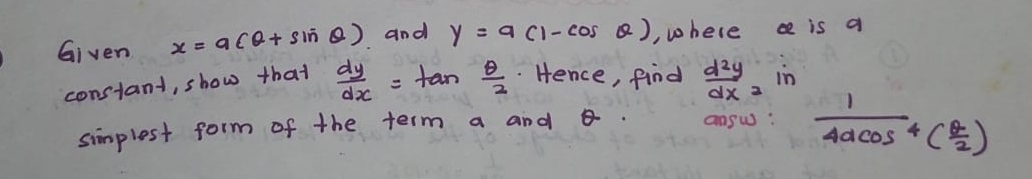 Given x = a(θ + sin θ) and y = a(1 - cos θ), where a is a
constant, show that dy/dx = tan θ/2 . Hence, find d²y/dx² in
simplest form of the term a and θ . answ: 1/(4a cos⁴(θ/2))